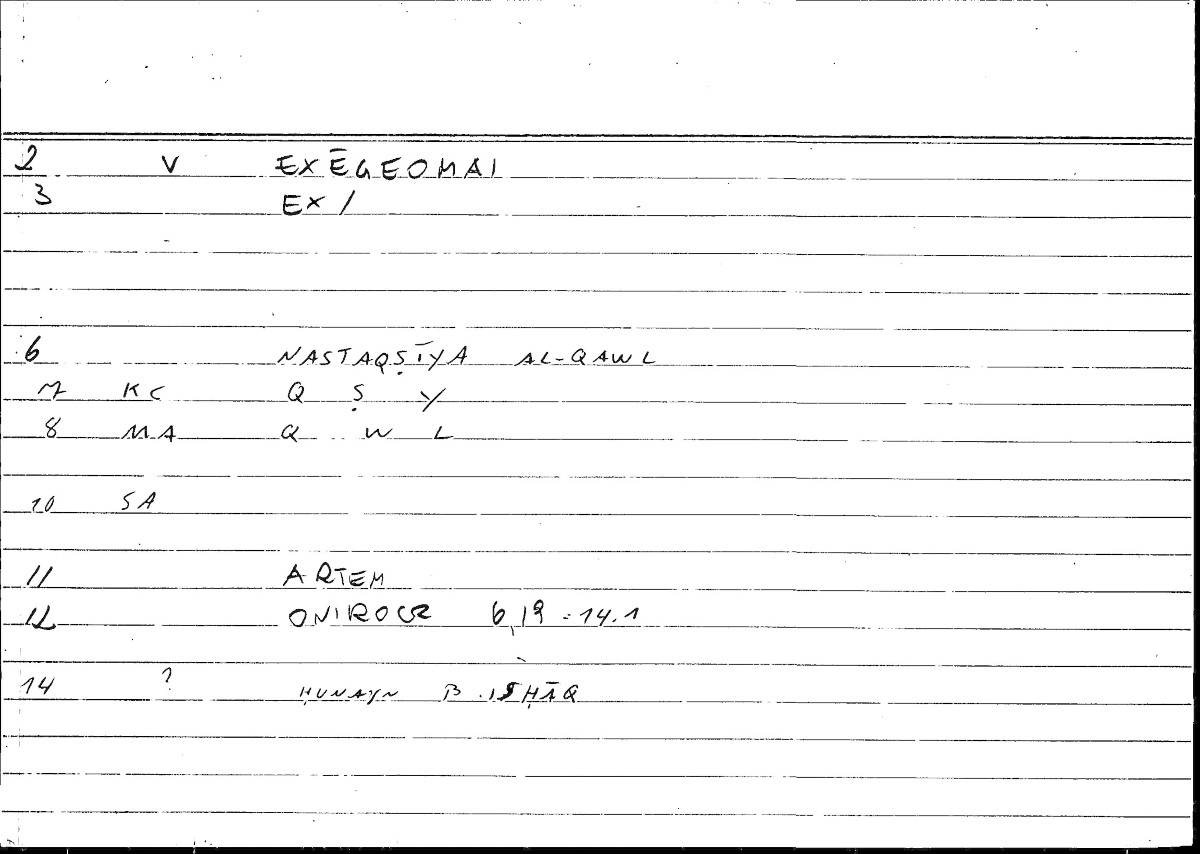 2 V EXĒGEOMAI
3 EX /
6 NASTAQṢĪYA AL-QAWL
7 KC Q Ṣ Y
8 MA Q W L
10 SA
11 ARTEM
12 ONIROCR 6,19 = 14.1
14 ? ḤUNAYN B. ISḤĀQ